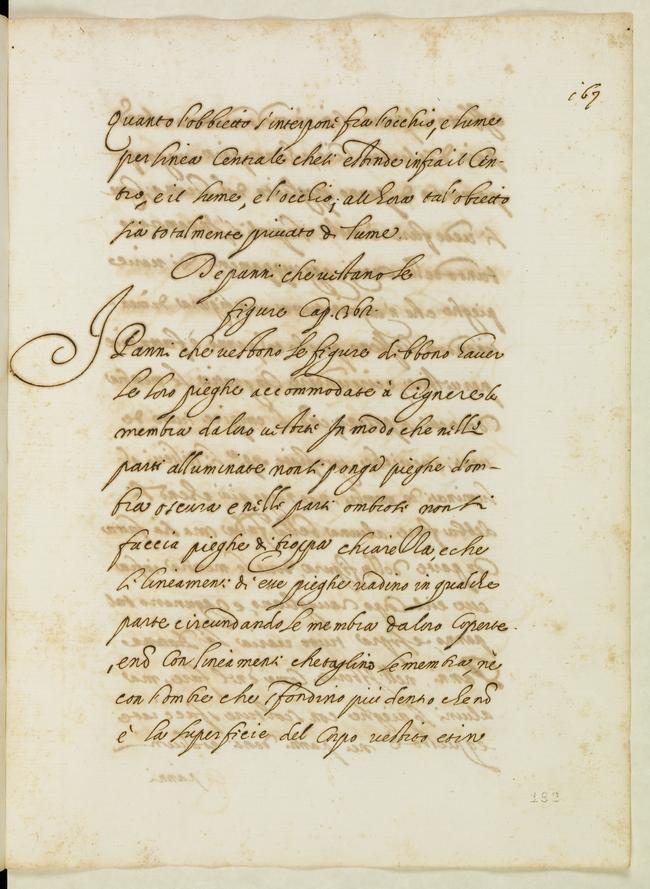 167
Quanto l'obbietto s'interponi fra l'occhio, e lume
per linea Centrale che si estende infra il Cen-
tro, e il lume, e l'occhio, all hora tal'obietto
sia totalmente privato di lume.
De panni che vestano le
figure Cap. 362.
I Panni che vestono le figure debbono haver
le loro pieghe accommodate à Cignere le
membra da loro vestite In modo che nelle
parti alluminate non si ponga pieghe d'om-
bra oscura e nelle parti ombrose non si
faccia pieghe di troppa chiarezza e che
li lineamenti di esse pieghe vadino in qualche
parte circundando le membra da loro Coperte.
, e nõ Con lineamenti che taglino le membra, nè
con l'ombre che sfondino più dento che nõ
è la superficie del Corpo vestito et in
panni
183